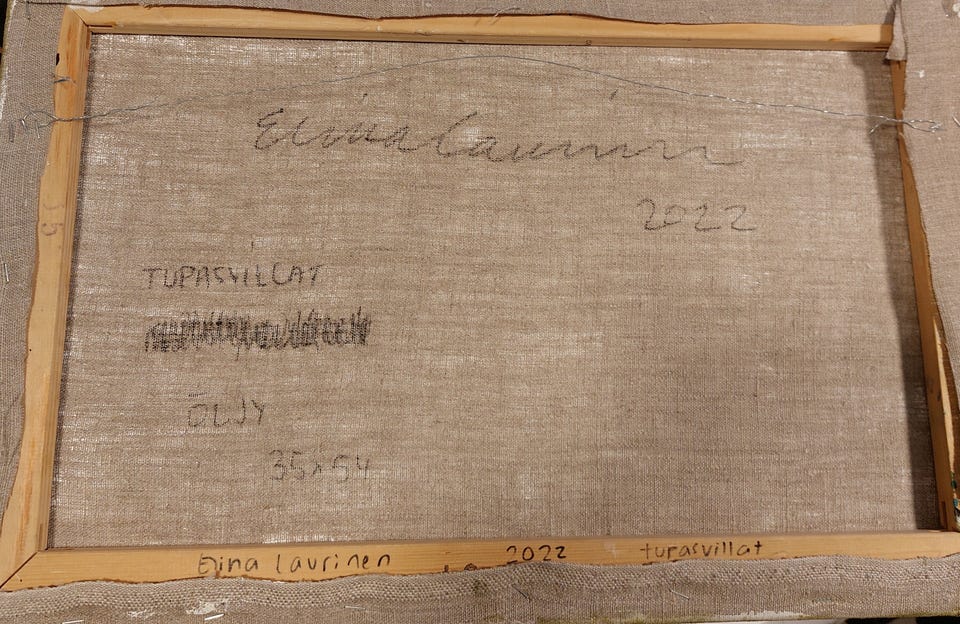 Elina Laurinen
2022
TUPASVILLAT
ÖLJY
35x54
Elina Laurinen 2022 tupasvillat